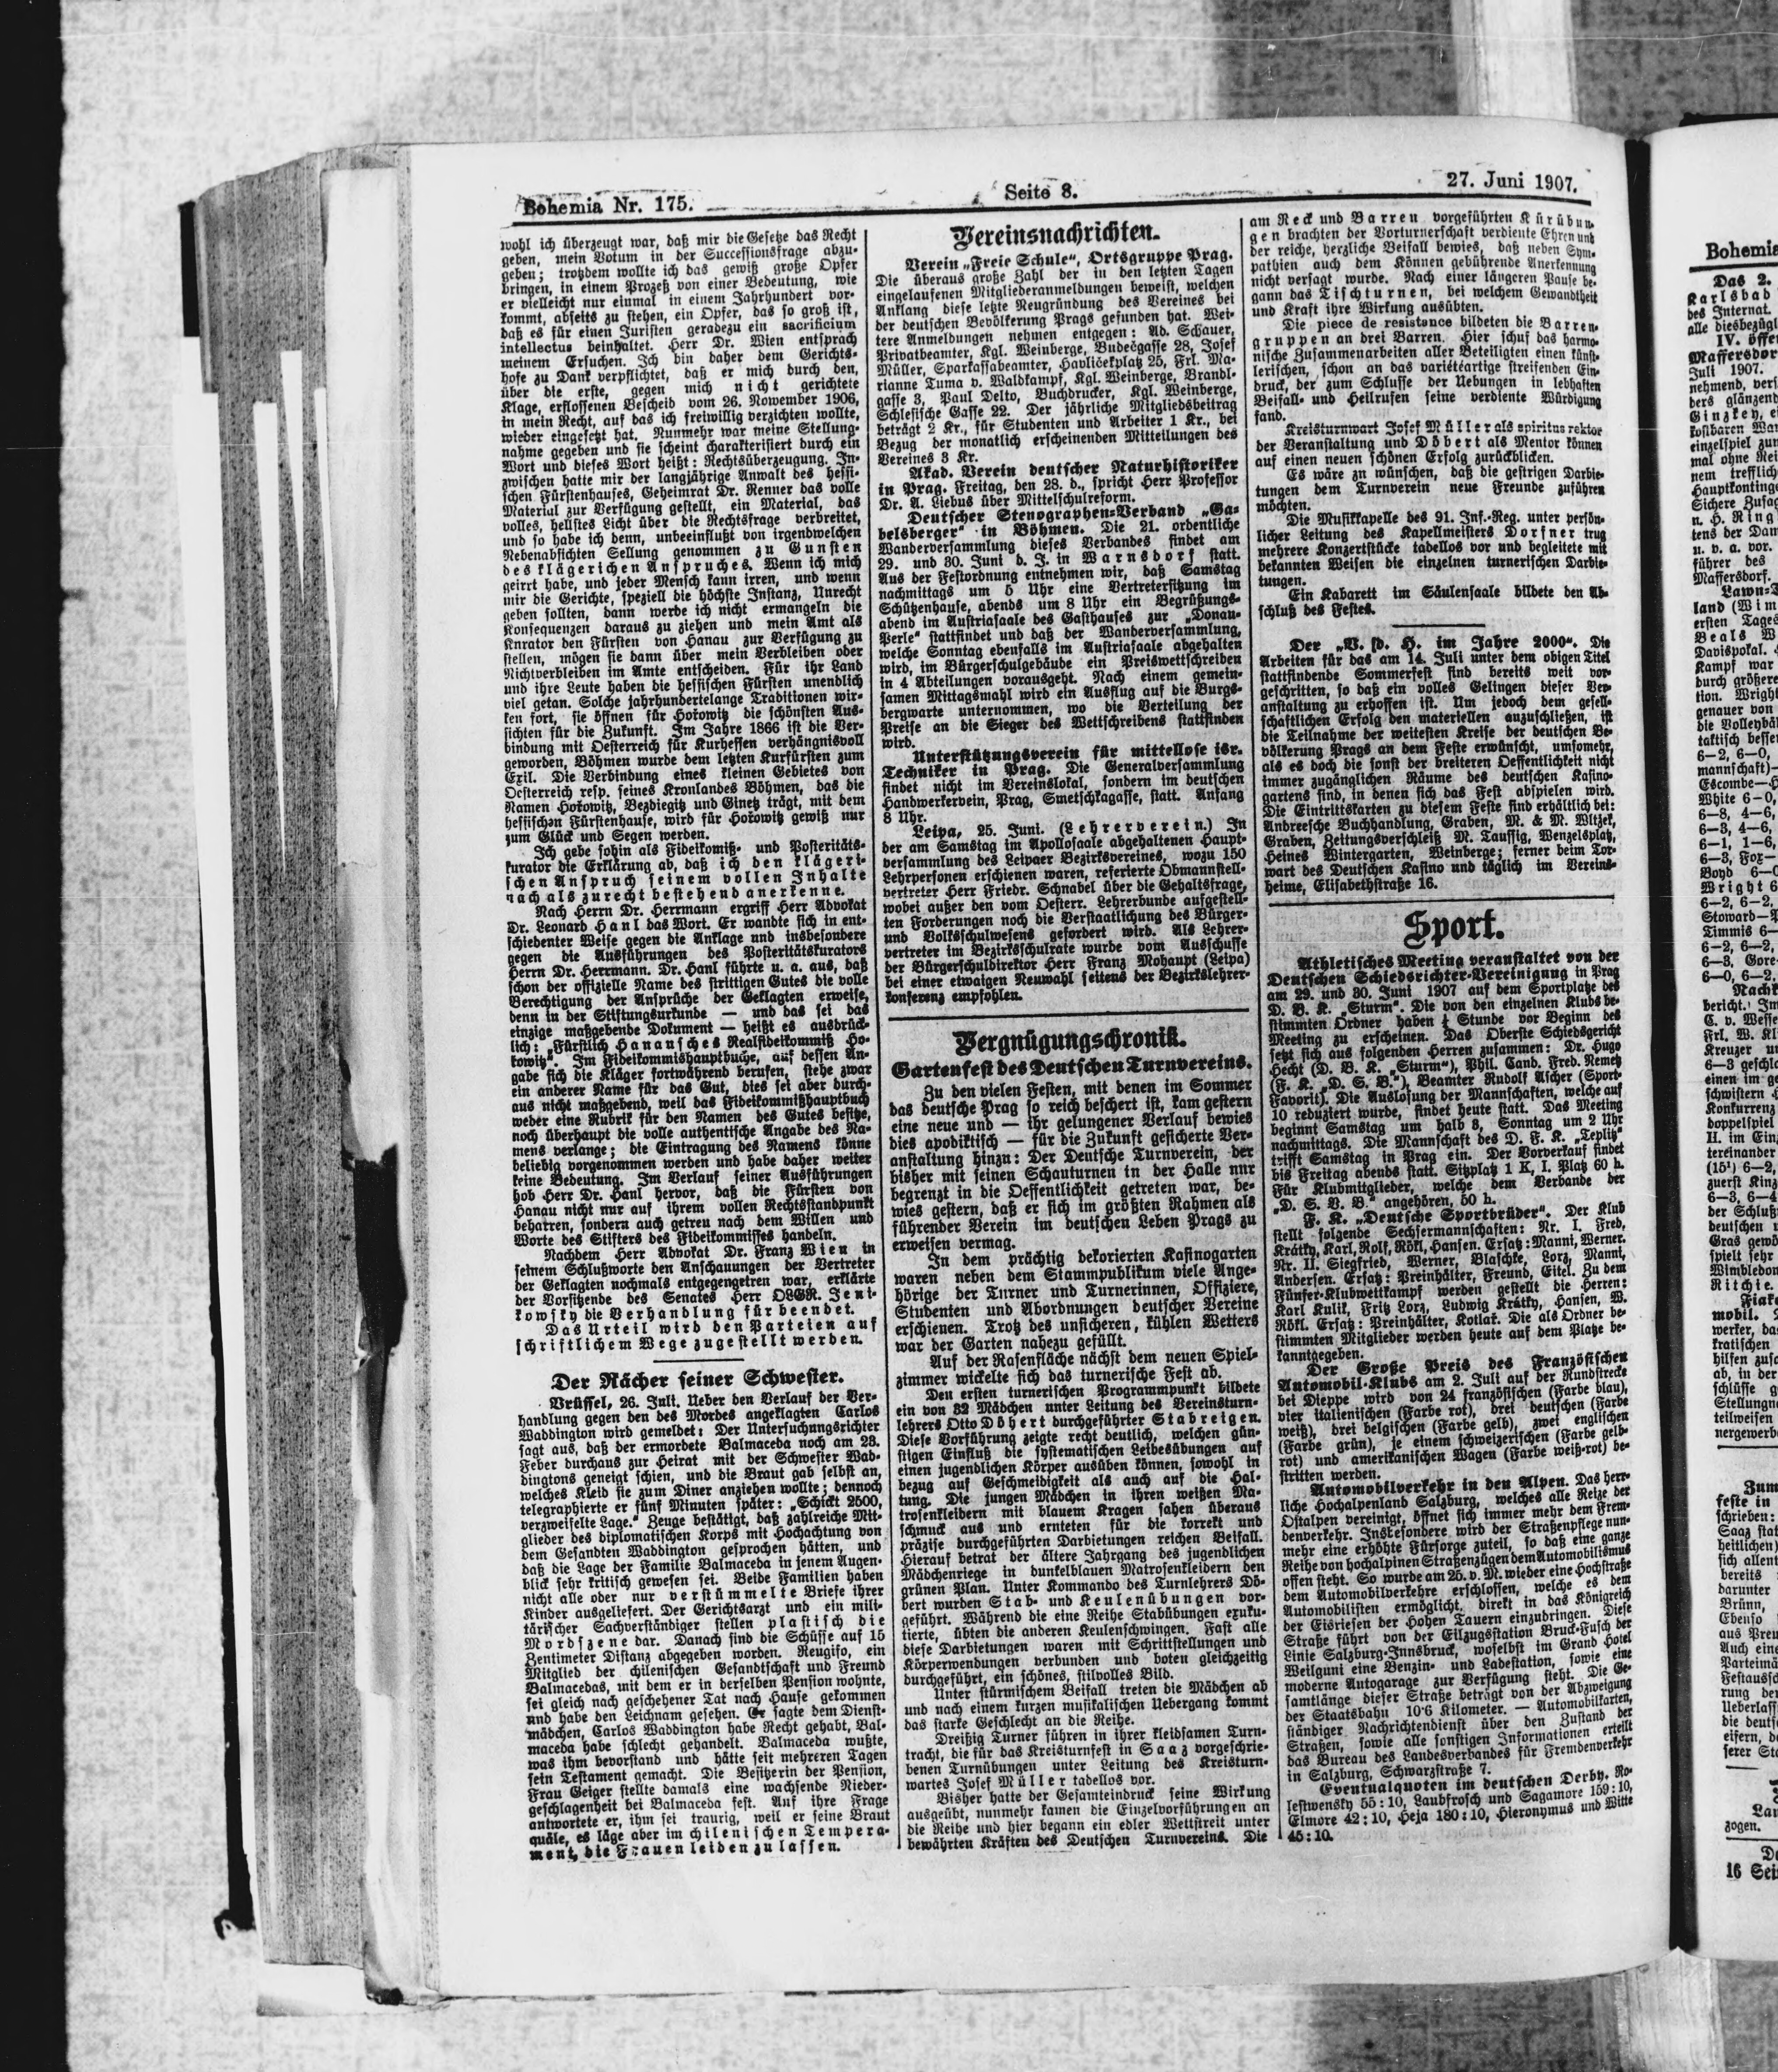 Bohemia Nr. 175.
Seite 8.
27. Juni 1907.
wohl ich überzeugt war, daß mir die Gesetze das Recht
geben, mein Votum in der Successionsfrage abzu-
geben; trotzdem wollte ich das gewiß große Opfer
bringen, in einem Prozeß von einer Bedeutung, wie
er vielleicht nur einmal in einem Jahrhundert vor-
kommt, abseits zu stehen, ein Opfer, das so groß ist,
daß es für einen Juristen geradezu ein sacrificium
intellectus beinhaltet. Herr Dr. Wien entsprach
meinem Ersuchen. Ich bin daher dem Gerichts-
hofe zu Dank verpflichtet, daß er mich durch den,
über die erste, gegen mich nicht gerichtete
Klage, erflossenen Bescheid vom 26. November 1906,
in mein Recht, auf das ich freiwillig verzichten wollte,
wieder eingesetzt hat. Nunmehr war meine Stellung-
nahme gegeben und sie scheint charakterisiert durch ein
Wort und dieses Wort heißt: Rechtsüberzeugung. In-
zwischen hatte mir der langjährige Anwalt des hessi-
schen Fürstenhauses, Geheimrat Dr. Renner das volle
Material zur Verfügung gestellt, ein Material, das
volles, hellstes Licht über die Rechtsfrage verbreitet,
und so habe ich denn, unbeeinflußt von irgendwelchen
Nebenabsichten Sellung genommen zu Gunsten
des klägerichen Anspruches. Wenn ich mich
geirrt habe, und jeder Mensch kann irren, und wenn
mir die Gerichte, speziell die höchste Instanz, Unrecht
geben sollten, dann werde ich nicht ermangeln die
Konsequenzen daraus zu ziehen und mein Amt als
Knrator den Fürsten von Hanau zur Verfügung zu
stellen, mögen sie dann über mein Verbleiben oder
Nichtverbleiben im Amte entscheiden. Für ihr Land
und ihre Leute haben die hessischen Fürsten unendlich
viel getan. Solche jahrhundertelange Traditionen wir-
ken fort, sie öffnen für Hořowitz die schönsten Aus-
sichten für die Zukunft. Im Jahre 1866 ist die Ver-
bindung mit Oesterreich für Kurhessen verhängnisvoll
geworden, Böhmen wurde dem letzten Kurfürsten zum
Exil. Die Verbindung eines kleinen Gebietes von
Oesterreich resp. seines Kronlandes Böhmen, das die
Namen Hořowitz, Bezdiegitz und Ginetz trägt, mit dem
hessischen Fürstenhause, wird für Hořowitz gewiß nur
zum Glück und Segen werden.
Ich gebe sohin als Fideikomiß- und Posteritäts-
kurator die Erklärung ab, daß ich den klägeri-
schen Anspruch seinem vollen Inhalte
nach als zurecht bestehend anerkenne.
Nach Herrn Dr. Herrmann ergriff Herr Advokat
Dr. Leonard Hanl das Wort. Er wandte sich in ent-
schiedenter Weise gegen die Anklage und insbesondere
gegen die Ausführungen des Posteritätskurators
Herrn Dr. Herrmann. Dr. Hanl führte u. a. aus, daß
schon der offizielle Name des strittigen Gutes die volle
Berechtigung der Ansprüche der Geklagten erweise,
denn in der Stiftungsurkunde — und das sei das
einzige maßgebende Dokument — heißt es ausdrück-
lich: „Fürstlich Hanausches Realfideikommiß Ho-
řowitz“. Im Fideikommishauptbuche, auf dessen An-
gabe sich die Kläger fortwährend berufen, stehe zwar
ein anderer Name für das Gut, dies sei aber durch-
aus nicht maßgebend, weil das Fideikommißhauptbuch
weder eine Rubrik für den Namen des Gutes besitze,
noch überhaupt die volle authentische Angabe des Na-
mens verlange; die Eintragung des Namens könne
beliebig vorgenommen werden und habe daher weiter
keine Bedeutung. Im Verlauf seiner Ausführungen
hob Herr Dr. Hanl hervor, daß die Fürsten von
Hanau nicht nur auf ihrem vollen Rechtsstandpunkt
beharren, sondern auch getreu nach dem Willen und
Worte des Stifters des Fideikommisses handeln.
Nachdem Herr Advokat Dr. Franz Wien in
seinem Schlußworte den Anschauungen der Vertreter
der Geklagten nochmals entgegengetreten war, erklärte
der Vorsitzende des Senates Herr OLGR. Jeni-
kowsky die Verhandlung für beendet.
Das Urteil wird den Parteien auf
schriftlichem Wege zugestellt werden.
Der Rächer seiner Schwester.
Brüssel, 26. Juli. Ueber den Verlauf der Ver-
handlung gegen den des Mordes angeklagten Carlos
Waddington wird gemeldet: Der Untersuchungsrichter
sagt aus, daß der ermordete Balmaceda noch am 23.
Feber durchaus zur Heirat mit der Schwester Wad-
dingtons geneigt schien, und die Braut gab selbst an,
welches Kleid sie zum Diner anziehen wollte; dennoch
telegraphierte er fünf Minuten später: „Schickt 2500,
verzweifelte Lage.“ Zeuge bestätigt, daß zahlreiche Mit-
glieder des diplomatischen Korps mit Hochachtung von
dem Gesandten Waddington gesprochen hätten, und
daß die Lage der Familie Balmaceda in jenem Augen-
blick sehr kritisch gewesen sei. Beide Familien haben
nicht alle oder nur verstümmelte Briefe ihrer
Kinder ausgeliefert. Der Gerichtsarzt und ein mili-
tärischer Sachverständiger stellen plastisch die
Mordszene dar. Danach sind die Schüsse auf 15
Zentimeter Distanz abgegeben worden. Reugifo, ein
Mitglied der chilenischen Gesandtschaft und Freund
Balmacedas, mit dem er in derselben Pension wohnte,
sei gleich nach geschehener Tat nach Hause gekommen
und habe den Leichnam gesehen. Er sagte dem Dienst-
mädchen, Carlos Waddington habe Recht gehabt, Bal-
maceda habe schlecht gehandelt. Balmaceda wußte,
was ihm bevorstand und hätte seit mehreren Tagen
sein Testament gemacht. Die Besitzerin der Pension,
Frau Geiger stellte damals eine wachsende Nieder-
geschlagenheit bei Balmaceda fest. Auf ihre Frage
antwortete er, ihm sei traurig, weil er seine Braut
quäle, es läge aber im chilenischen Tempera-
ment, die Frauen leiden zu lassen.
Vereinsnachrichten.
Verein „Freie Schule“, Ortsgruppe Prag.
Die überaus große Zahl der in den letzten Tagen
eingelaufenen Mitgliederanmeldungen beweist, welchen
Anklang diese letzte Neugründung des Vereines bei
der deutschen Bevölkerung Prags gefunden hat. Wei-
tere Anmeldungen nehmen entgegen: Ad. Schauer,
Privatbeamter, Kgl. Weinberge, Budečgasse 28, Josef
Müller, Sparkassabeamter, Havličekplatz 25, Frl. Ma-
rianne Tuma v. Waldkampf, Kgl. Weinberge, Brandl-
gasse 3, Paul Delto, Buchdrucker, Kgl. Weinberge,
Schlesische Gasse 22. Der jährliche Mitgliedsbeitrag
beträgt 2 Kr., für Studenten und Arbeiter 1 Kr., bei
Bezug der monatlich erscheinenden Mitteilungen des
Vereines 3 Kr.
Akad. Verein deutscher Naturhistoriker
in Prag. Freitag, den 28. d., spricht Herr Professor
Dr. A. Liebus über Mittelschulreform.
Deutscher Stenographen-Verband „Ga-
belsberger“ in Böhmen. Die 21. ordentliche
Wanderversammlung dieses Verbandes findet am
29. und 30. Juni d. J. in Warnsdorf statt.
Aus der Festordnung entnehmen wir, daß Samstag
nachmittags um 5 Uhr eine Vertretersitzung im
Schützenhause, abends um 8 Uhr ein Begrüßungs-
abend im Austriasaale des Gasthauses zur „Donau-
Perle“ stattfindet und daß der Wanderversammlung,
welche Sonntag ebenfalls im Austriasaale abgehalten
wird, im Bürgerschulgebäude ein Preiswettschreiben
in 4 Abteilungen vorausgeht. Nach einem gemein-
samen Mittagsmahl wird ein Ausflug auf die Burgs-
bergwarte unternommen, wo die Verteilung der
Preise an die Sieger des Wettschreibens stattfinden
wird.
Unterstützungsverein für mittellose isr.
Techniker in Prag. Die Generalversammlung
findet nicht im Vereinslokal, sondern im deutschen
Handwerkervein, Prag, Smetschkagasse, statt. Anfang
8 Uhr.
Leipa, 25. Juni. (Lehrerverein.) In
der am Samstag im Apollosaale abgehaltenen Haupt-
versammlung des Leipaer Bezirksvereines, wozu 150
Lehrpersonen erschienen waren, referierte Obmannstell-
vertreter Herr Friedr. Schnabel über die Gehaltsfrage,
wobei außer den vom Oesterr. Lehrerbunde aufgestell-
ten Forderungen noch die Verstaatlichung des Bürger-
und Volksschulwesens gefordert wird. Als Lehrer-
vertreter im Bezirksschulrate wurde vom Ausschusse
der Bürgerschuldirektor Herr Franz Mohaupt (Leipa)
bei einer etwaigen Neuwahl seitens der Bezirkslehrer-
konferenz empfohlen.
Vergnügungschronik.
Gartenfest des Deutschen Turnvereins.
Zu den vielen Festen, mit denen im Sommer
das deutsche Prag so reich beschert ist, kam gestern
eine neue und — ihr gelungener Verlauf bewies
dies apodiktisch — für die Zukunft gesicherte Ver-
anstaltung hinzu: Der Deutsche Turnverein, der
bisher mit seinen Schauturnen in der Halle nur
begrenzt in die Oeffentlichkeit getreten war, be-
wies gestern, daß er sich im größten Rahmen als
führender Verein im deutschen Leben Prags zu
erweisen vermag.
In dem prächtig dekorierten Kasinogarten
waren neben dem Stammpublikum viele Ange-
hörige der Turner und Turnerinnen, Offiziere,
Studenten und Abordnungen deutscher Vereine
erschienen. Trotz des unsicheren, kühlen Wetters
war der Garten nahezu gefüllt.
Auf der Rasenfläche nächst dem neuen Spiel-
zimmer wickelte sich das turnerische Fest ab.
Den ersten turnerischen Programmpunkt bildete
ein von 32 Mädchen unter Leitung des Vereinsturn-
lehrers Otto Döbert durchgeführter Stabreigen.
Diese Vorführung zeigte recht deutlich, welchen gün-
stigen Einfluß die systematischen Leibesübungen auf
einen jugendlichen Körper ausüben können, sowohl in
bezug auf Geschmeidigkeit als auch auf die Hal-
tung. Die jungen Mädchen in ihren weißen Ma-
trosenkleidern mit blauem Kragen sahen überaus
schmuck aus und ernteten für die korrekt und
präzise durchgeführten Darbietungen reichen Beifall.
Hierauf betrat der ältere Jahrgang des jugendlichen
Mädchenriege in dunkelblauen Matrosenkleidern den
grünen Plan. Unter Kommando des Turnlehrers Dö-
bert wurden Stab- und Keulenübungen vor-
geführt. Während die eine Reihe Stabübungen exuku-
tierte, übten die anderen Keulenschwingen. Fast alle
diese Darbietungen waren mit Schrittstellungen und
Körperwendungen verbunden und boten gleichzeitig
durchgeführt, ein schönes, stilvolles Bild.
Unter stürmischem Beifall treten die Mädchen ab
und nach einem kurzen musikalischen Uebergang kommt
das starke Geschlecht an die Reihe.
Dreißig Turner führen in ihrer kleidsamen Turn-
tracht, die für das Kreisturnfest in Saaz vorgeschrie-
benen Turnübungen unter Leitung des Kreisturn-
wartes Josef Müller tadellos vor.
Bisher hatte der Gesamteindruck seine Wirkung
ausgeübt, nunmehr kamen die Einzelvorführungen an
die Reihe und hier begann ein edler Wettstreit unter
bewährten Kräften des Deutschen Turnvereins. Die
am Reck und Barren vorgeführten Kürübun-
gen brachten der Vorturnerschaft verdiente Ehren und
der reiche, herzliche Beifall bewies, daß neben Sym-
pathien auch dem Können gebührende Anerkennung
nicht versagt wurde. Nach einer längeren Pause be-
gann das Tischturnen, bei welchem Gewandtheit
und Kraft ihre Wirkung ausübten.
Die piece de resistance bildeten die Barren-
gruppen an drei Barren. Hier schuf das harmo-
nische Zusammenarbeiten aller Beteiligten einen künst-
lerischen, schon an das variétéartige streifenden Ein-
druck, der zum Schlusse der Uebungen in lebhaften
Beifall- und Heilrufen seine verdiente Würdigung
fand.
Kreisturnwart Josef Müller als spiritus rektor
der Veranstaltung und Döbert als Mentor können
auf einen neuen schönen Erfolg zurückblicken.
Es wäre zu wünschen, daß die gestrigen Darbie-
tungen dem Turnverein neue Freunde zuführen
möchten.
Die Musikkapelle des 91. Inf.-Reg. unter persön-
licher Leitung des Kapellmeisters Dorfner trug
mehrere Konzertstücke tadellos vor und begleitete mit
bekannten Weisen die einzelnen turnerischen Darbie-
tungen.
Ein Kabarett im Säulensaale bildete den Ab-
schluß des Festes.
Der „V. d. H. im Jahre 2000“. Die
Arbeiten für das am 14. Juli unter dem obigen Titel
stattfindende Sommerfest sind bereits weit vor-
geschritten, so daß ein volles Gelingen dieser Ver-
anstaltung zu erhoffen ist. Um jedoch dem gesell-
schaftlichen Erfolg den materiellen anzuschließen, ist
die Teilnahme der weitesten Kreise der deutschen Be-
völkerung Prags an dem Feste erwünscht, umsomehr,
als es doch die sonst der breiteren Oeffentlichkeit nicht
immer zugänglichen Räume des deutschen Kasino-
gartens sind, in denen sich das Fest abspielen wird.
Die Eintrittskarten zu diesem Feste sind erhältlich bei:
Andreesche Buchhandlung, Graben, M. & M. Wltzek,
Graben, Zeitungsverschleiß M. Taussig, Wenzelsplatz,
Heines Wintergarten, Weinberge; ferner beim Tor-
wart des Deutschen Kasino und täglich im Vereins-
heime, Elisabethstraße 16.
Sport.
Athletisches Meeting veranstaltet von der
Deutschen Schiedsrichter-Vereinigung in Prag
am 29. und 30. Juni 1907 auf dem Sportplatze des
D. B. K. „Sturm“. Die von den einzelnen Klubs be-
stimmten Ordner haben ½ Stunde vor Beginn des
Meeting zu erscheinen. Das Oberste Schiedsgericht
setzt sich aus folgenden Herren zusammen: Dr. Hugo
Hecht (D. B. K. „Sturm“), Phil. Cand. Fred. Nemetz
(F. K. „D. S. B.“), Beamter Rudolf Ascher (Sport-
Favorit). Die Auslosung der Mannschaften, welche auf
10 reduziert wurde, findet heute statt. Das Meeting
beginnt Samstag um halb 3, Sonntag um 2 Uhr
nachmittags. Die Mannschaft des D. F. K. „Teplitz“
trifft Samstag in Prag ein. Der Vorverkauf findet
bis Freitag abends statt. Sitzplatz 1 K, I. Platz 60 h.
Für Klubmitglieder, welche dem Verbande der
„D. S. V. B.“ angehören, 50 h.
F. K. „Deutsche Sportbrüder“. Der Klub
stellt folgende Sechsermannschaften: Nr. I. Fred,
Krátky, Karl, Rolf, Rökl, Hansen. Ersatz: Manni, Werner.
Nr. II. Siegfried, Werner, Blaschke, Lorz, Manni,
Andersen. Ersatz: Preinhälter, Freund, Eitel. Zu dem
Fünfer-Klubwettkampf werden gestellt die Herren:
Karl Kulik, Fritz Lorz, Ludwig Krátky, Hansen, W.
Rökl. Ersatz: Preinhälter, Kotlak. Die als Ordner be-
stimmten Mitglieder werden heute auf dem Platze be-
kanntgegeben.
Der Große Preis des Französischen
Automobil-Klubs am 2. Juli auf der Rundstrecke
bei Dieppe wird von 24 französischen (Farbe blau),
vier italienischen (Farbe rot), drei deutschen (Farbe
weiß), drei belgischen (Farbe gelb), zwei englischen
(Farbe grün), je einem schweizerischen (Farbe gelb-
rot) und amerikanischen Wagen (Farbe weiß-rot) be-
stritten werden.
Automobilverkehr in den Alpen. Das herr-
liche Hochalpenland Salzburg, welches alle Reize der
Ostalpen vereinigt, öffnet sich immer mehr dem Frem-
denverkehr. Insbesondere wird der Straßenpflege nun-
mehr eine erhöhte Fürsorge zuteil, so daß eine ganze
Reihe von hochalpinen Straßenzügen dem Automobilismus
offen steht. So wurde am 25. v. M. wieder eine Hochstraße
dem Automobilverkehre erschlossen, welche es dem
Automobilisten ermöglicht, direkt in das Königreich
der Eisriesen der Hohen Tauern einzubringen. Diese
Straße führt von der Eilzugsstation Bruck-Fusch der
Linie Salzburg-Innsbruck, woselbst im Grand Hotel
Weilguni eine Benzin- und Ladestation, sowie eine
moderne Autogarage zur Verfügung steht. Die Ge-
samtlänge dieser Straße beträgt von der Abzweigung
der Staatsbahn 10·6 Kilometer. — Automobilkarten,
ständiger Nachrichtendienst über den Zustand der
Straßen, sowie alle sonstigen Informationen erteilt
das Bureau des Landesverbandes für Fremdenverkehr
in Salzburg, Schwarzstraße 7.
Eventualquoten im deutschen Derby. Ro-
lestwensky 55:10, Laubfrosch und Sagamore 159:10,
Elmore 42:10, Heja 180:10, Hieronymus und Witte
45:10.
Bohemia
Das 2.
Karlsbad
des Internat.
alle diesbezügl
IV. öffe
Maffersdor
Juli 1907.
nehmend, vers
ders glänzend
Ginzkey, ei
kostbaren Wan
einzelspiel zum
mal ohne Rei
nem trefflich
Hauptkontinge
Sichere Zusag
n. H. Ring
tens der Dam
u. v. a. vor.
führer des
Maffersdorf.
Lawn-T
land (Wim
ersten Tages
Beals W
Davispokal.
Kampf war
durch größere
tion. Wright
genauer von
die Volleybäl
taktisch besser
6–2, 6–0,
mannschaft)—
Escombe—H
White 6–0,
6–8, 4–6,
6–3, 4–6,
6–1, 1–6,
6–3, Fox—
Boyd 6–0
Wright 6
6–2, 6–2,
Stoward—P
Timmis 6—
6–2, 6–2,
6–3, Gore-
6–0, 6–2,
Nachk
bericht. Im
C. v. Wesse
Frl. W. Kl
Kreuzer un
6–3 geschla
einen im ge
schwistern
Konkurrenz
doppelspiel
II. im Einz
tereinander
(15¹) 6–2,
zuerst Kinz
6–3, 6–4
der Schluß
deutschen u
Gras gewö
spielt sehr
Wimbledon
Ritchie.
Fiake
mobil.
werker, da
kratischen
hilfen zusa
ab, in der
schlüsse g
Stellungn
teilweisen
nergewerb
Zum
feste in
schrieben:
Saaz stat
heitlichen)
sich allent
bereits
darunter
Brünn,
Ebenso
aus Preu
Auch eine
Parteimä
Festaussch
rung der
Ueberlass
die deutsch
eifern, da
serer Sta
Lau
zogen.
De
16 Sei